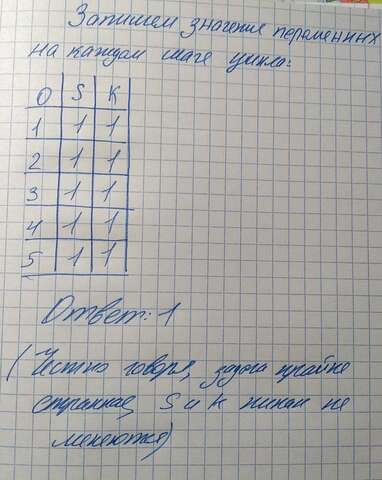 Запишем значение переменных
на каждом шаге цикла:
0 S K
1 1 1
2 1 1
3 1 1
4 1 1
5 1 1
Ответ: 1
(Честно говоря, задача крайне
странная, S и K никак не
меняются)